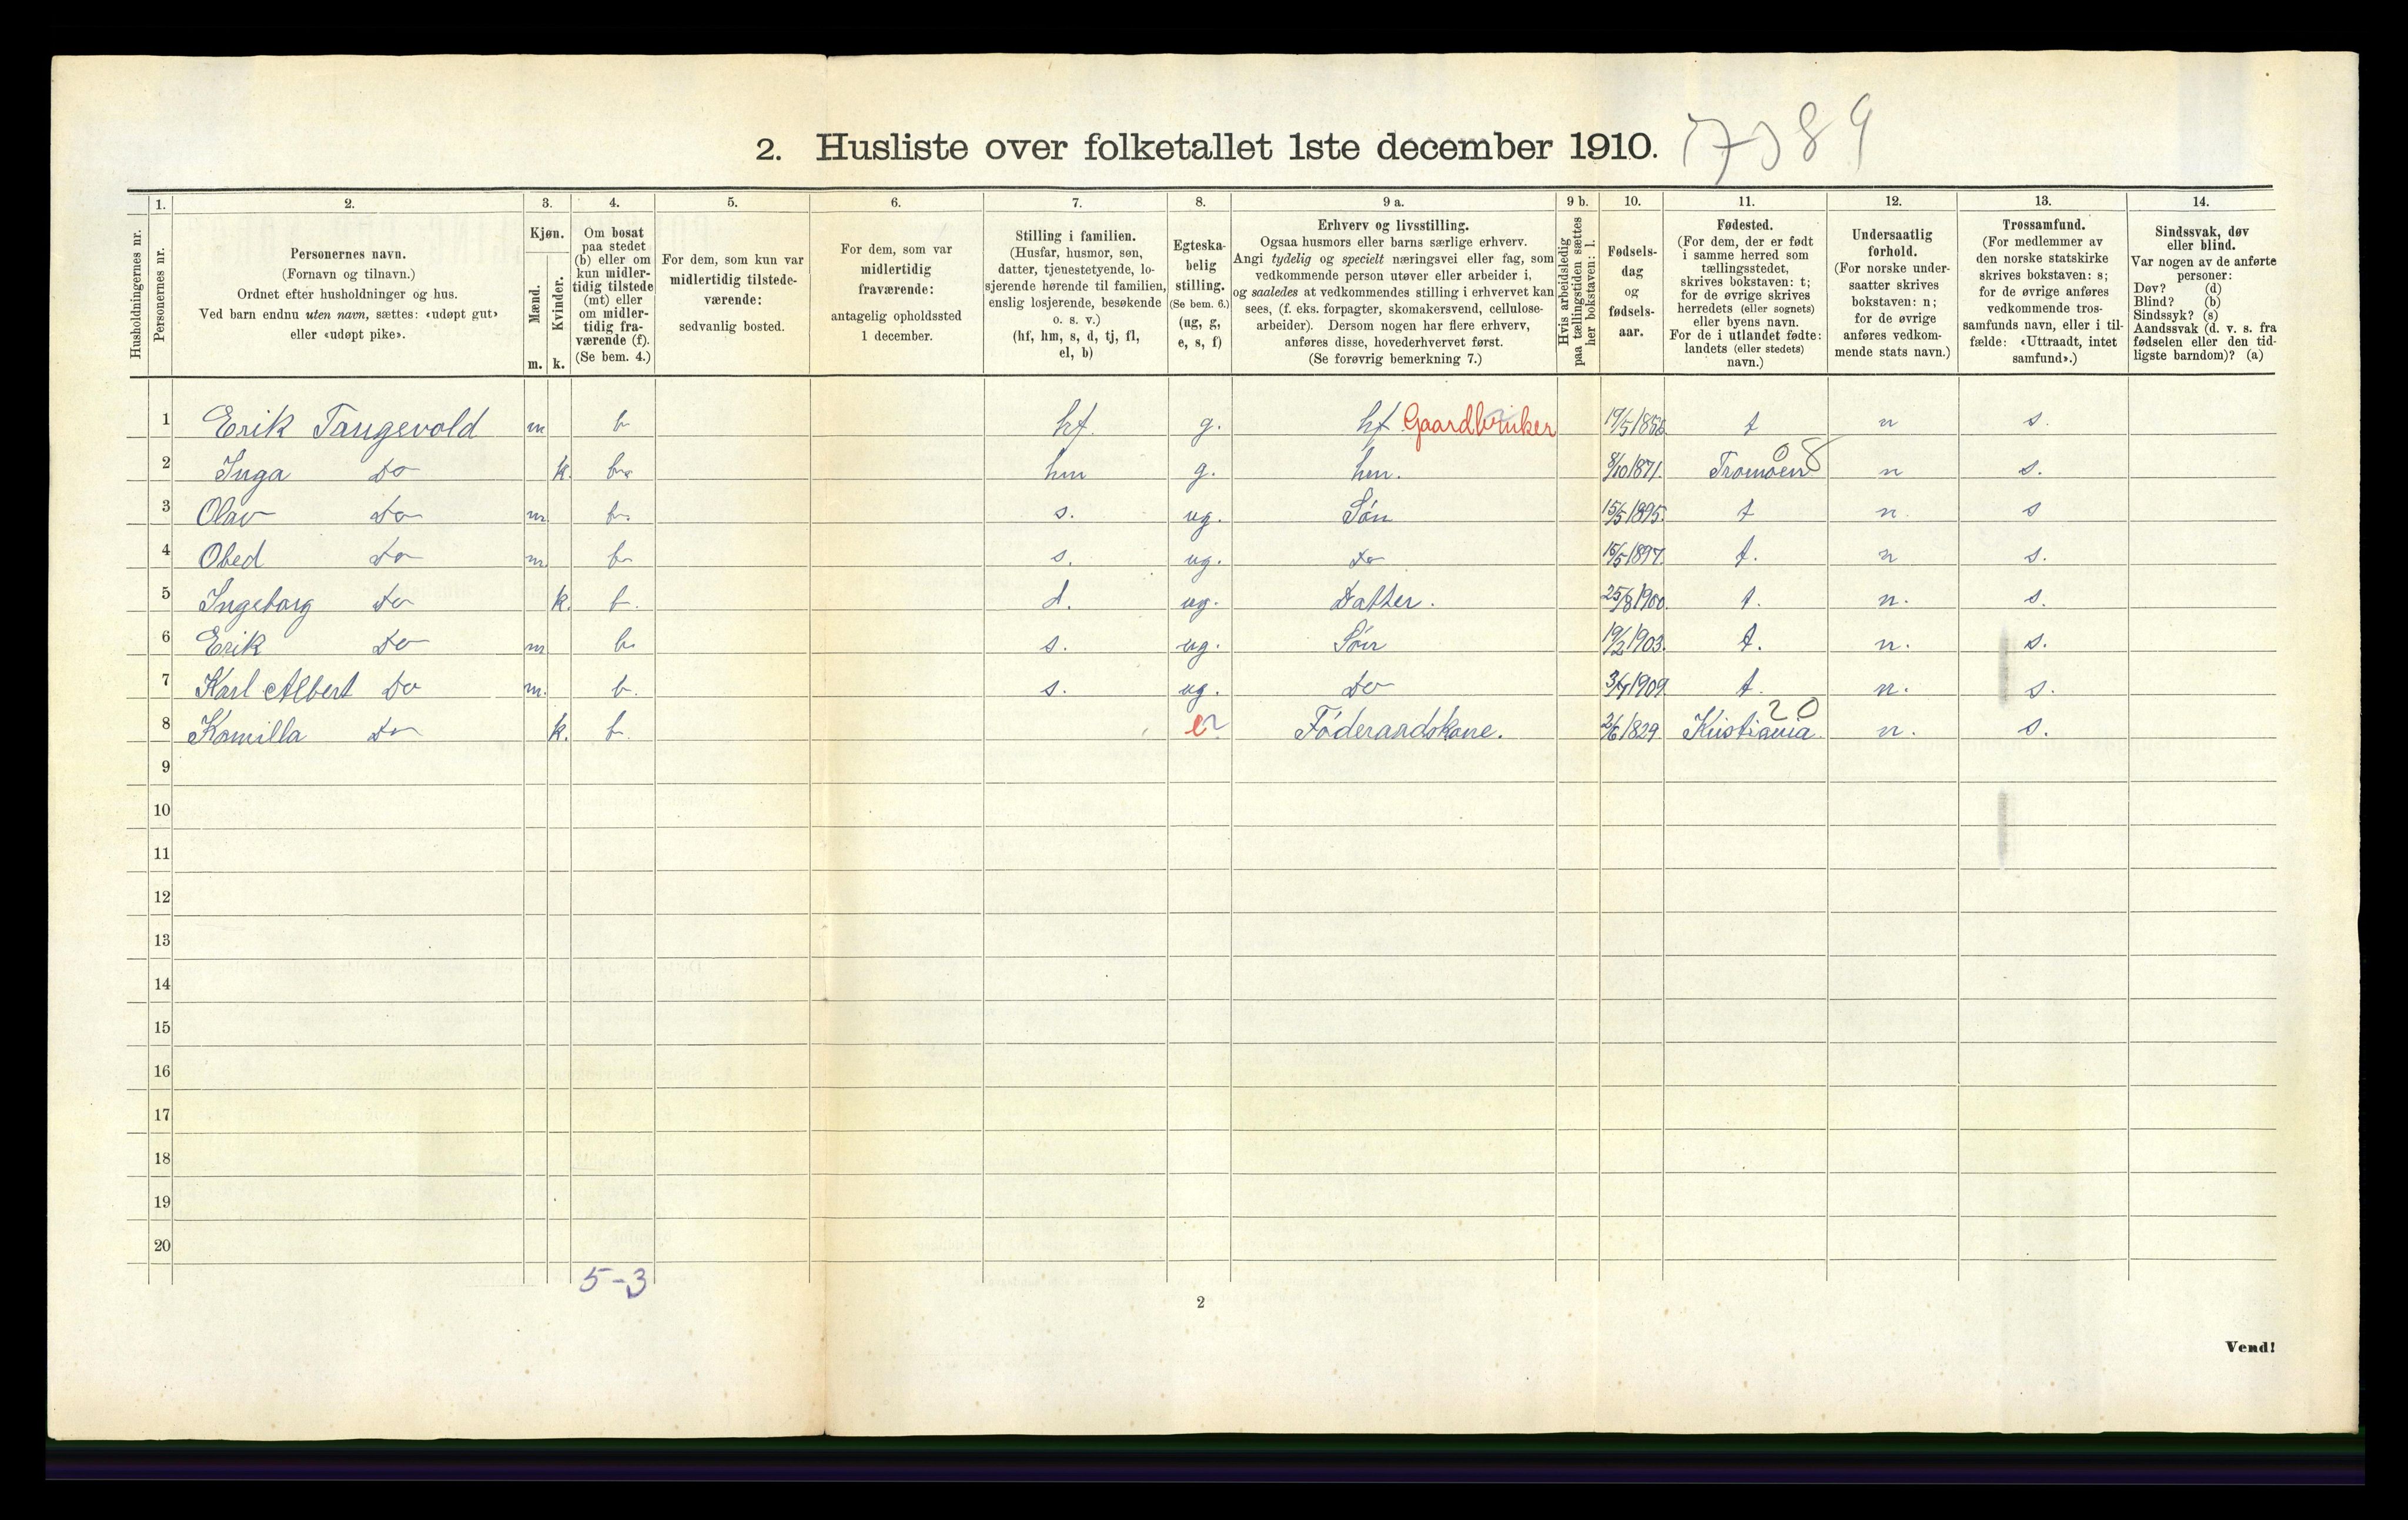 2. Husliste over folketallet 1ste december 1910.
1. 2. 3. 4. 5. 6. 7. 8. 9 a. 9 b. 10. 11. 12. 13. 14.
Husholdningernes nr.
Personernes nr.
Personernes navn.
(Fornavn og tilnavn.)
Ordnet efter husholdninger og hus.
Ved barn endnu uten navn, sættes: «udøpt gut»
eller «udøpt pike».
Kjøn.
Mænd.
Kvinder.
m. k.
Om bosat
paa stedet
(b) eller om
kun midler-
tidig tilstede
(mt) eller
om midler-
tidig fra-
værende (f).
(Se bem. 4.)
For dem, som kun var
midlertidig tilstede-
værende:
sedvanlig bosted.
For dem, som var
midlertidig
fraværende:
antagelig opholdssted
1 december.
Stilling i familien.
(Husfar, husmor, søn,
datter, tjenestetyende, lo-
sjerende hørende til familien,
enslig losjerende, besøkende
o. s. v.)
(hf, hm, s, d, tj, fl,
el, b)
Egteska-
belig
stilling.
(Se bem. 6.)
(ug, g,
e, s, f)
Erhverv og livsstilling.
Ogsaa husmors eller barns særlige erhverv.
Angi tydelig og specielt næringsvei eller fag, som
vedkommende person utøver eller arbeider i,
og saaledes at vedkommendes stilling i erhvervet kan
sees, (f. eks. forpagter, skomakersvend, cellulose-
arbeider). Dersom nogen har flere erhverv,
anføres disse, hovederhvervet først.
(Se forøvrig bemerkning 7.)
Hvis arbeidsledig
paa tællingstiden sættes
her bokstaven: l.
Fødsels-
dag
og
fødsels-
aar.
Fødested.
(For dem, der er født
i samme herred som
tællingsstedet,
skrives bokstaven: t;
for de øvrige skrives
herredets (eller sognets)
eller byens navn.
For de i utlandet fødte:
landets (eller stedets)
navn.)
Undersaatlig
forhold.
(For norske under-
saatter skrives
bokstaven: n;
for de øvrige
anføres vedkom-
mende stats navn.)
Trossamfund.
(For medlemmer av
den norske statskirke
skrives bokstaven: s;
for de øvrige anføres
vedkommende tros-
samfunds navn, eller i til-
fælde: «Uttraadt, intet
samfund».)
Sindssvak, døv
eller blind.
Var nogen av de anførte
personer:
Døv? (d)
Blind? (b)
Sindssyk? (s)
Aandssvak (d. v. s. fra
fødselen eller den tid-
ligste barndom)? (a)
1 Erik Tangevold m b hf. g. hf. Gaardbruker t n s.
2 Inga Do k. b. hm g. hm. 8/10 1871. Tromøen 8 n s.
3 Olav Do m b. s. ug. Søn 15/5 1895. t n s
4 Obed Do m b s. ug. Do 15/5 1897. t. n s.
5 Ingeborg Do k. b. d. ug. Datter. 25/8 1900. t. n. s.
6 Erik Do m b. s. ug. Søn 19/2 1903. t. n. s.
7 Karl Albert Do m. b. s. ug. Do 1909. t. n. s.
8 Kamilla Do k. b. e Føderaadskone. 2/6 1829 Kristiania 20 n. s.
9
10
11
12
13
14
15
16
17
18
19
20
5-3
2
Vend!